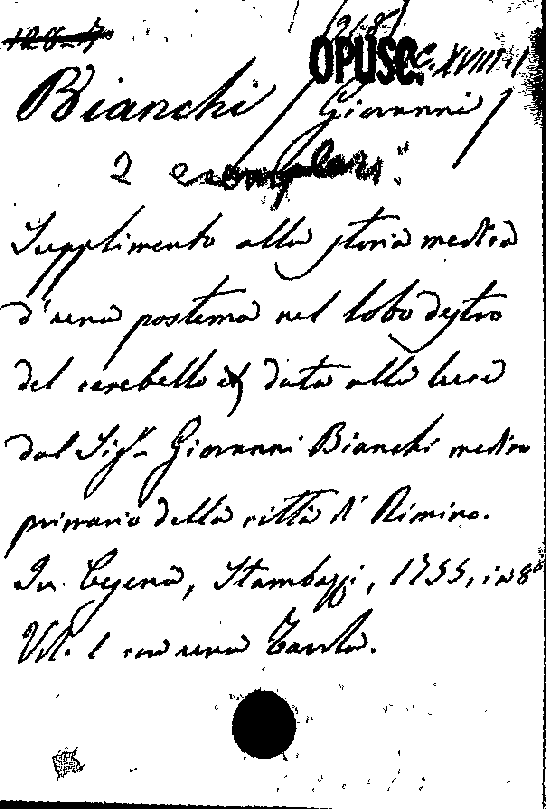 (2/8)
OPUSC. C. XVIII-1
Bianchi / Giovanni /
2 exemplari
Supplimento alla storia medica
d'una postema nel lobo dextro
del cerebello data alla luce
dal Sigr. Giovanni Bianchi medico
primario della città di Rimino.
In Cesena, Stambazzi, 1755, in 8°
Vol. 1 con una Tavola.